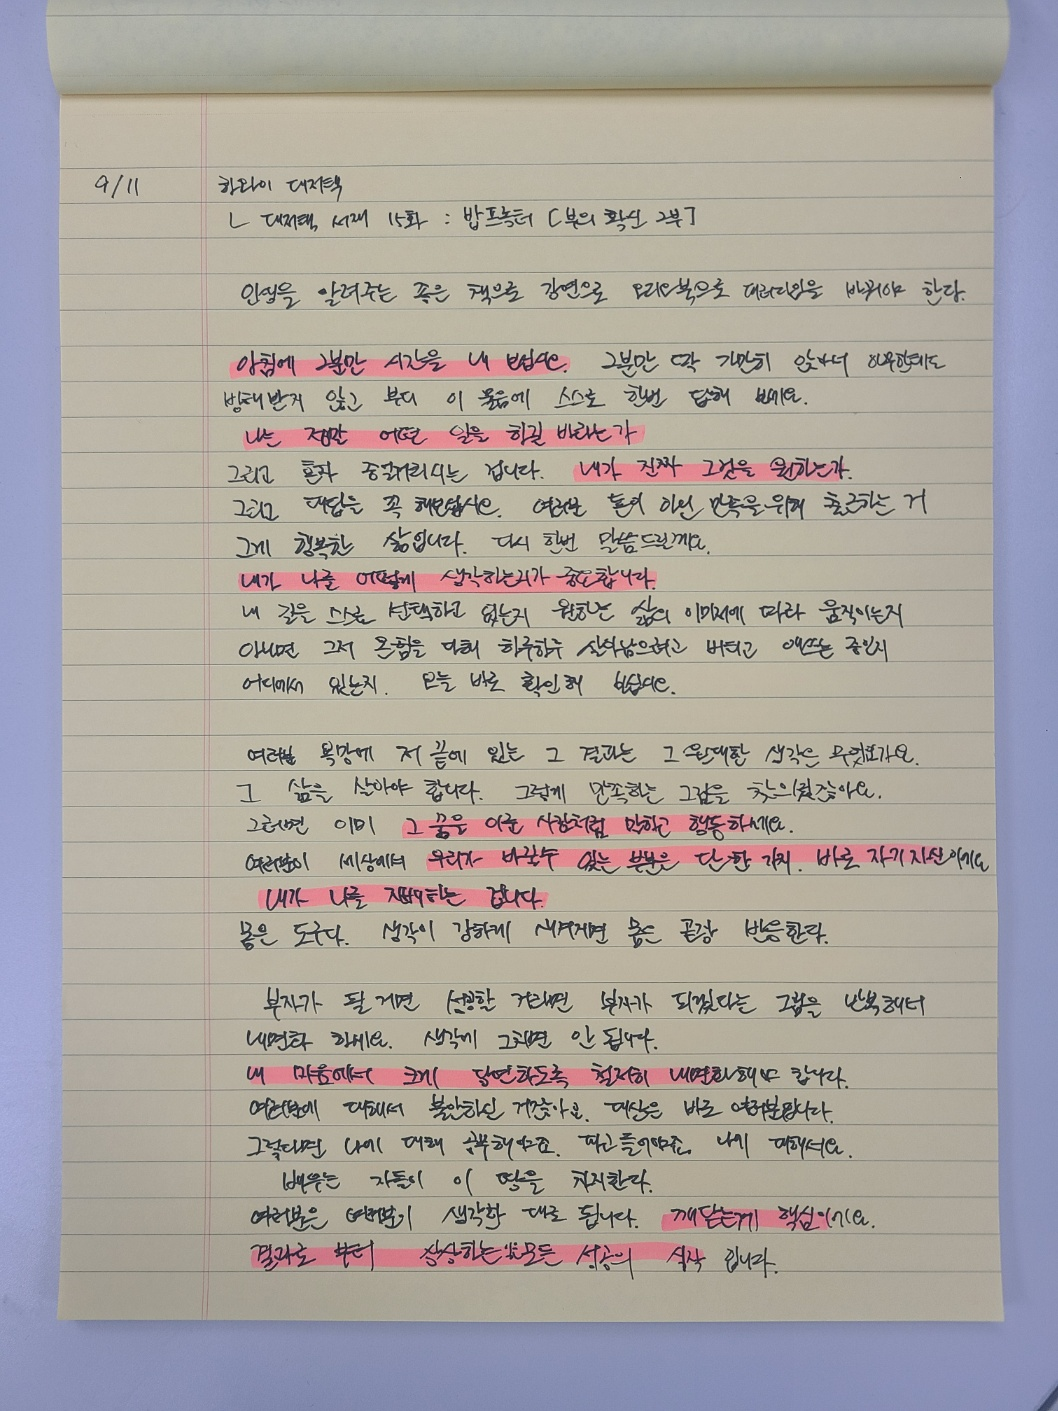 9/11 하와이 대저택
ㄴ 대저택 서재 15화 : 밥프록터 [부의 확신 2부]
인생을 알려주는 좋은 책으로 강연으로 오디오북으로 패러다임을 바꿔야 한다.
아침에 2분만 시간을 내 보십시오. 2분만 딱 가만히 앉아서 아무한테도
방해받지 않고 부디 이 물음에 스스로 한번 답해 보세요.
나는 정말 어떤 일을 하길 바라는가
그리고 혼자 중얼거리시는 겁니다. 내가 진짜 그것을 원하는가.
그리고 대답을 꼭 해보십시오. 여러분 돈이 아닌 만족을 위해 출근하는 거
그게 행복한 삶입니다. 다시 한번 말씀드릴게요.
내가 나를 어떻게 생각하는지가 중요합니다.
내 길을 스스로 선택하고 있는지 원하는 삶의 이미지에 따라 움직이는지
아니면 그저 온힘을 다해 하루하루 살아남으려고 버티고 애쓰는 중인지
어디에서 있는지. 오늘 바로 확인해 보십시오.
여러분 욕망에 저 끝에 있는 그 결과는 그 원대한 생각은 무엇인가요.
그 삶을 살아야 합니다. 그렇게 만족하는 그림을 찾으셨잖아요.
그러면 이미 그 꿈을 이룬 사람처럼 말하고 행동하세요.
여러분이 세상에서 우리가 바꿀수 있는 부분은 단 한 가지. 바로 자기 자신이에요
내가 나를 지배하는 겁니다.
몸은 도구다. 생각이 강하게 새겨지면 몸은 곧장 반응한다.
부자가 될 거면 성공할 거라면 부자가 되겠다는 그림을 반복해서
내면화 하세요. 생각에 그치면 안 됩니다.
내 마음에서 크게 당연하도록 철저히 내면화해야 합니다.
여러분에 대해서 불안하신 거잖아요. 대상은 바로 여러분입니다.
그렇다면 나에 대해 공부해야죠. 파고들어야죠. 나에 대해서요.
배우는 자들이 이 땅을 차지한다.
여러분은 여러분이 생각한 대로 됩니다. 깨닫는게 핵심이에요.
결과로 부터 상상하는 모든 성공의 시작 입니다.